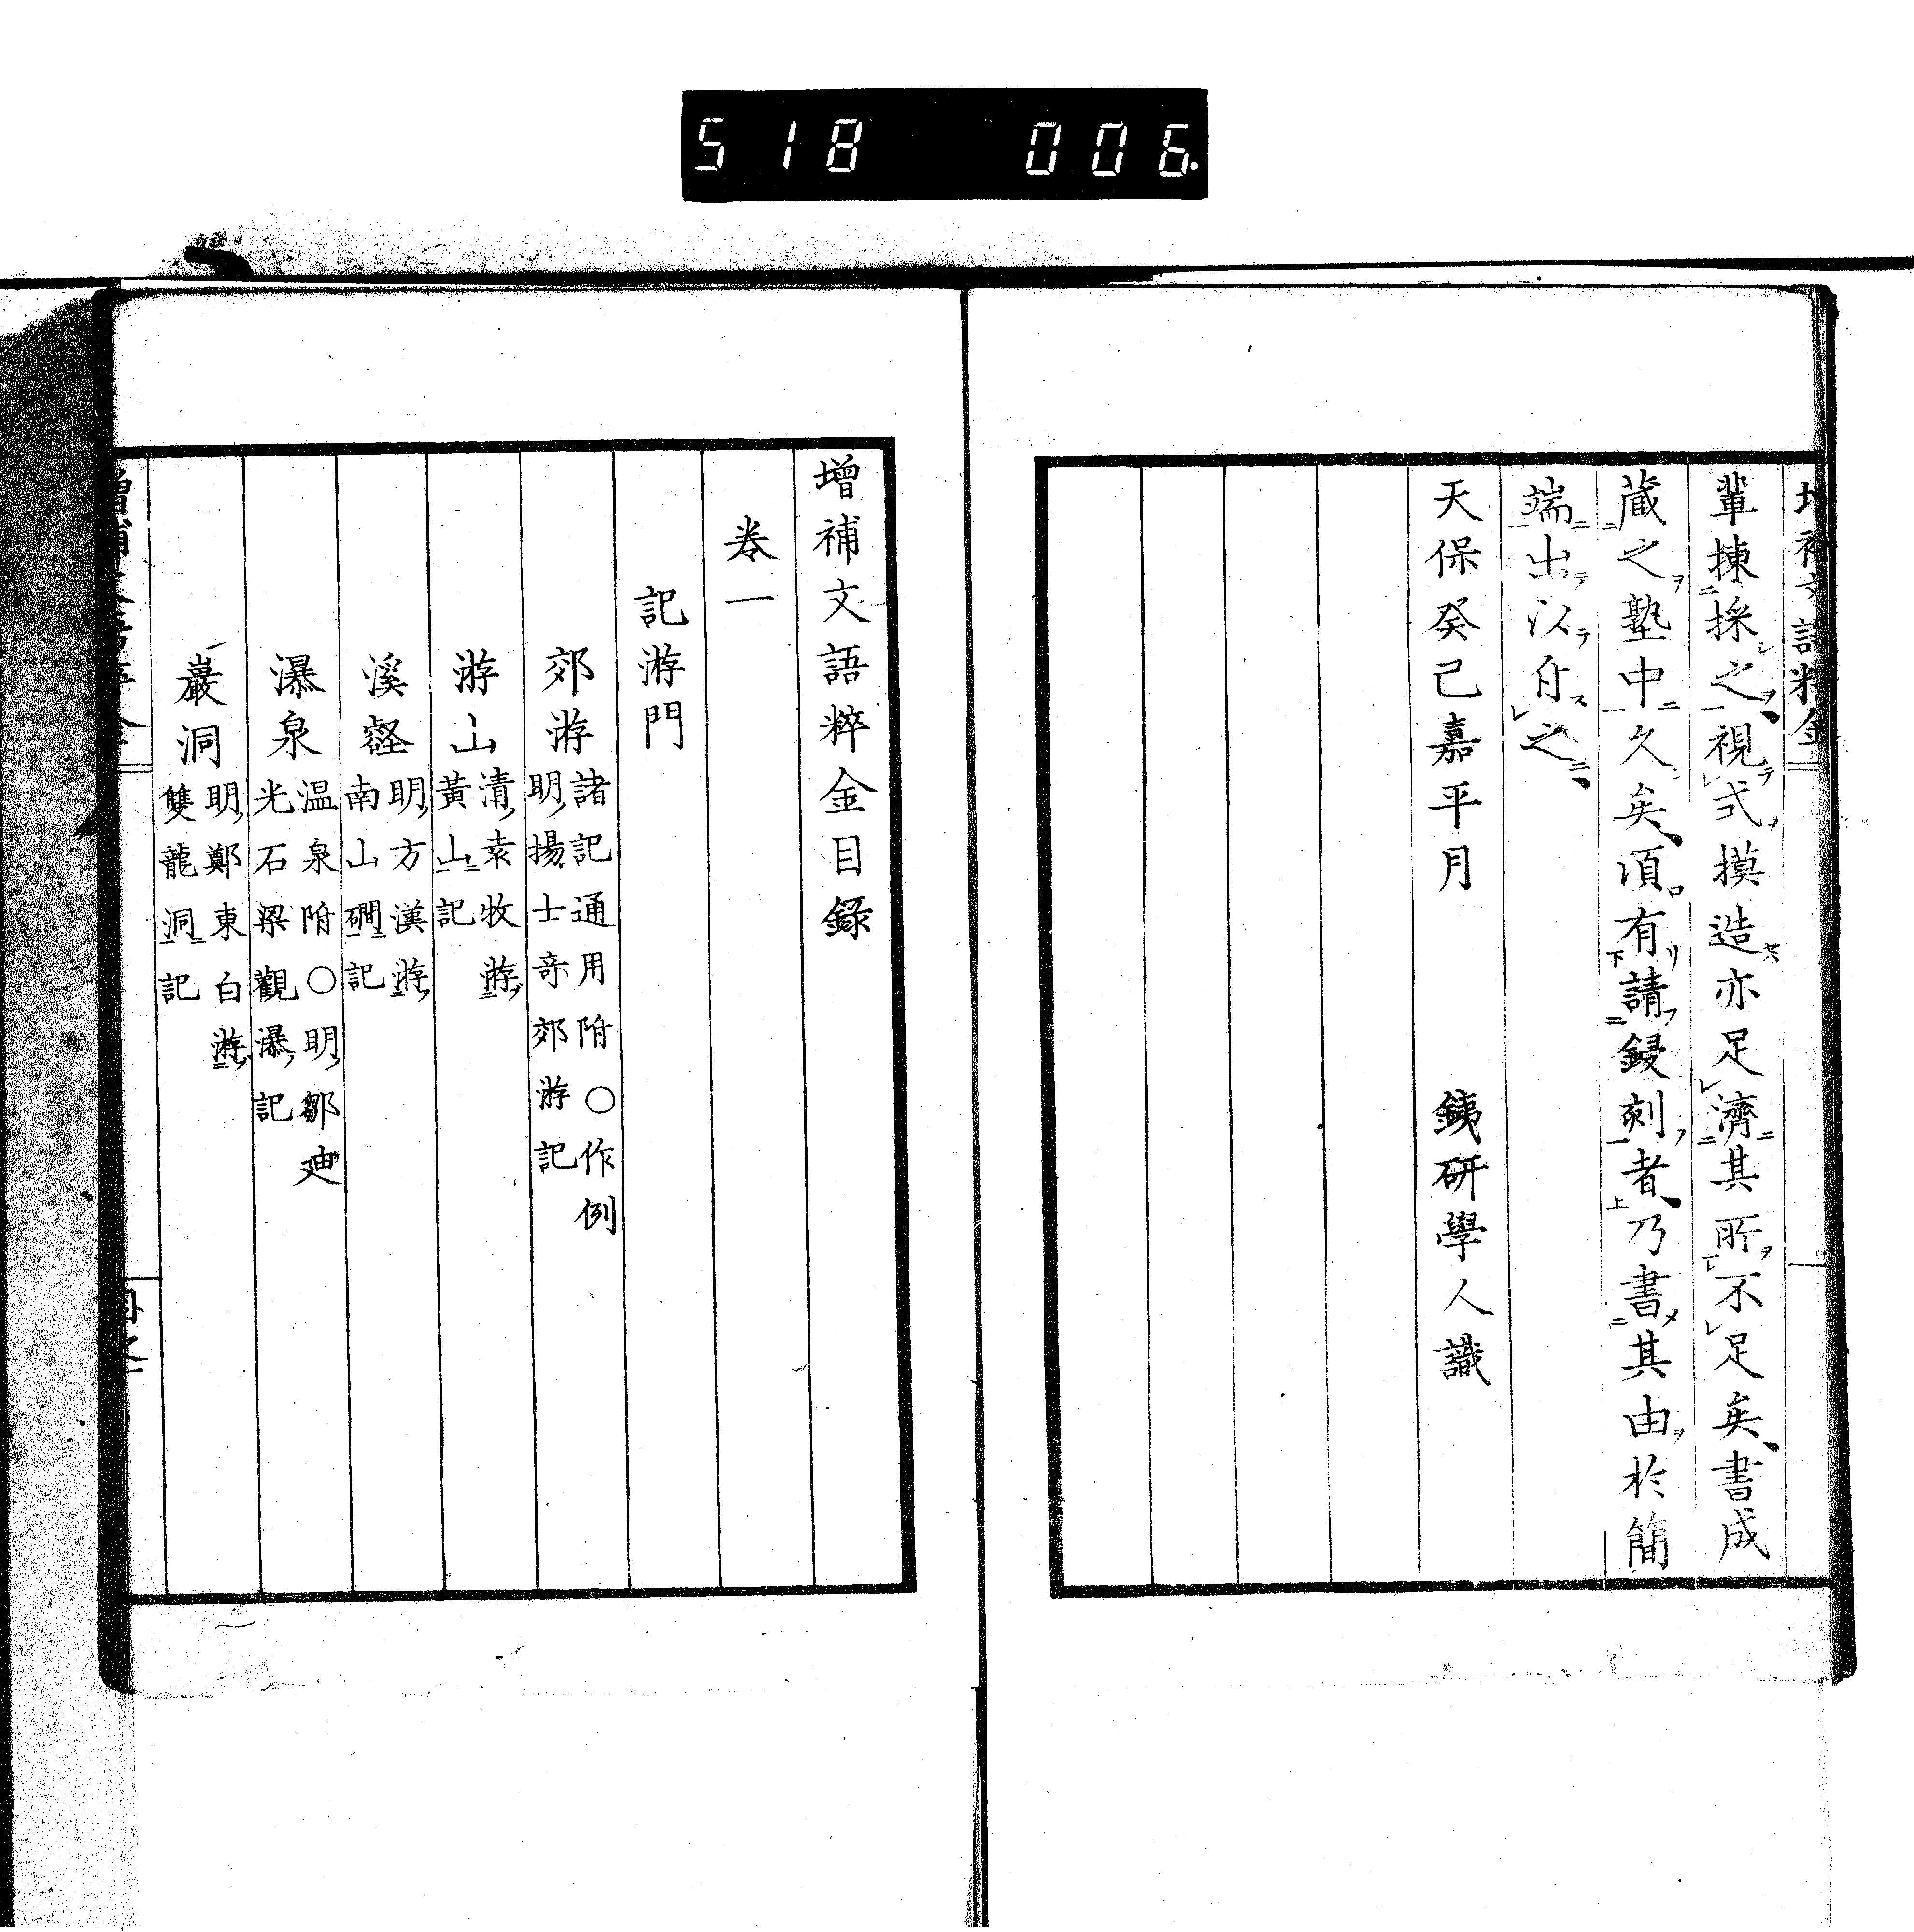 518 006.
輩揀採之視弍摸造亦足濟其所不足矣書成
蔵之塾中久矣頃有請鋟刻者乃書其由於簡
端出以身之
天保癸巳嘉平月 銕研學人識
增補文語粹金目録
卷一
記游門
郊游 諸記通用附○作例
明揚士奇郊游記
游山 清袁牧游
黃山記
溪壑 明方漢游
南山磵記
瀑泉 温泉附○明鄒廸
光石梁觀瀑記
巖洞 明鄭東白游
雙龍洞記